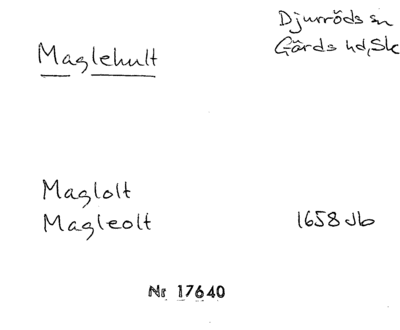 Maglehult
Djurröds sn
Gärds hd, Sk
Maglolt
Magleolt 1658 Jb
Nr 17640